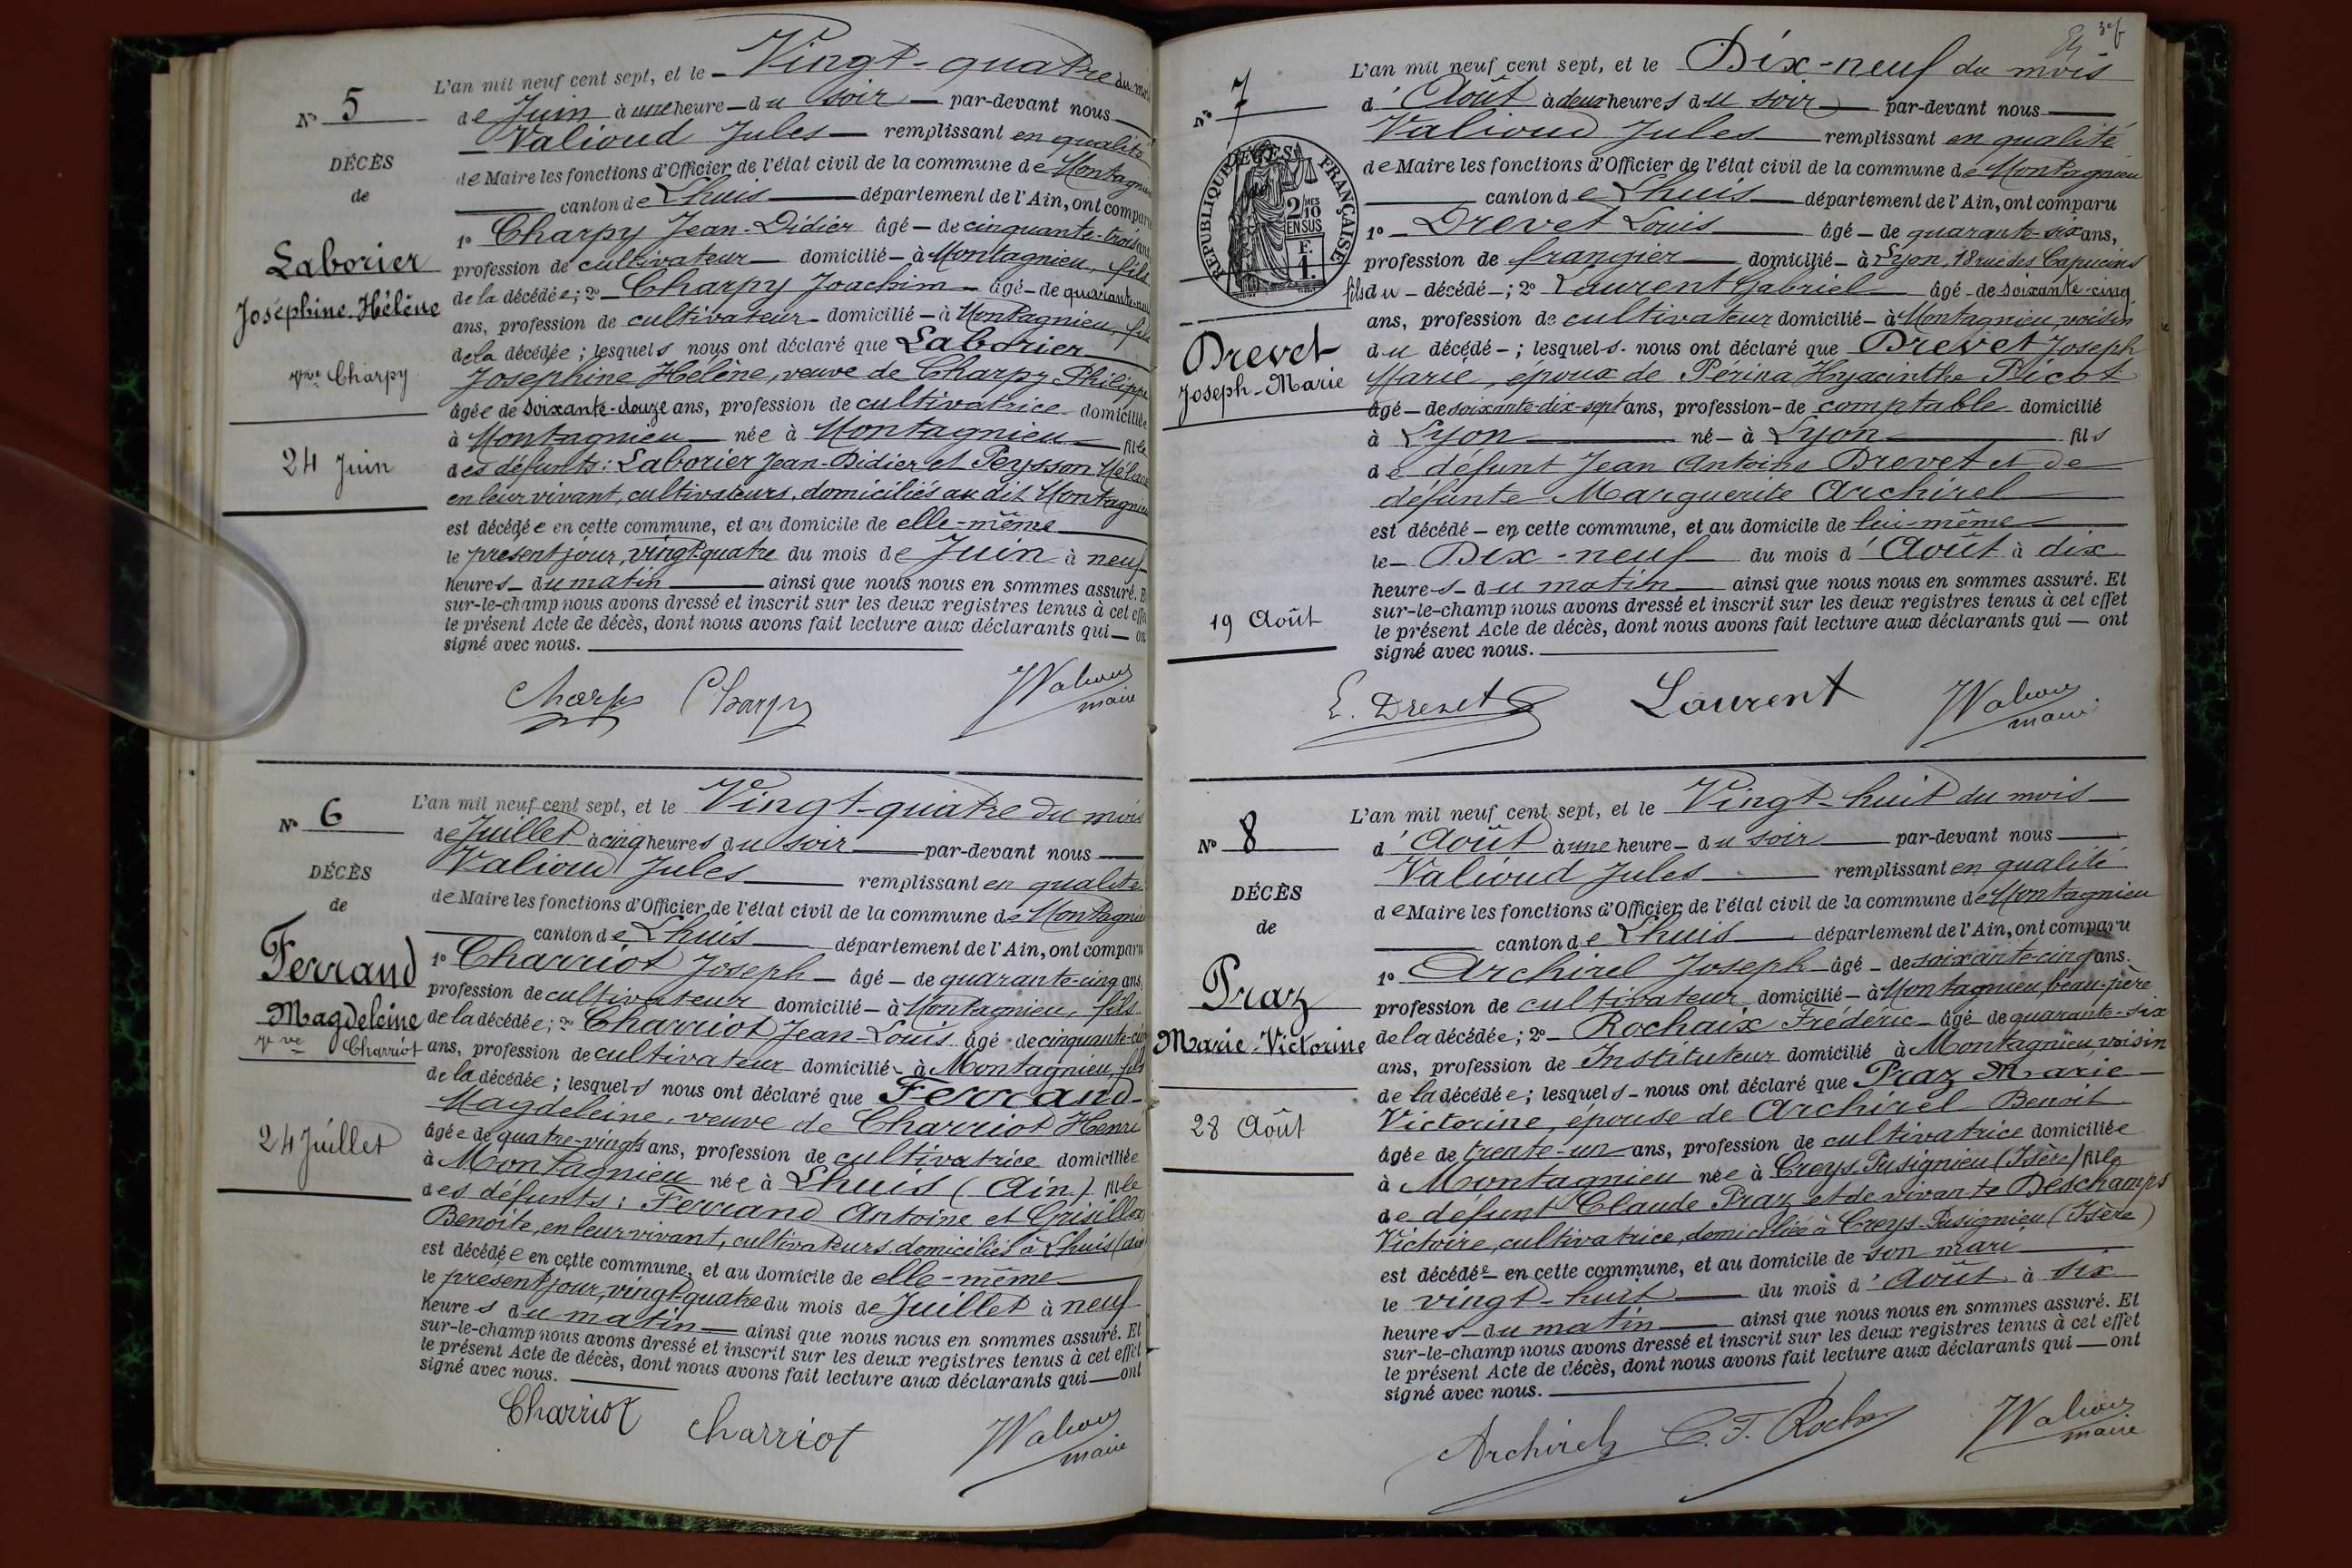 N° 5
DÉCÈS
de
Laborier
Joséphine Hélène
Vve Charpy
24 Juin
L'an mil neuf cent sept, et le Vingt-quatre du mois
de Juin à une heure du soir par-devant nous
Valioud Jules remplissant en qualité
de Maire les fonctions d'Officier de l'état civil de la commune de Montagnieu
canton de Lhuis département de l'Ain, ont comparu
1° Charpy Jean-Didier âgé de cinquante-trois ans,
profession de cultivateur domicilié à Montagnieu, fils
de la décédée; 2° Charpy Joachim âgé de quarante-neuf
ans, profession de cultivateur domicilié à Montagnieu, fils
de la décédée; lesquels nous ont déclaré que Laborier
Joséphine Hélène, veuve de Charpy Philippe
âgée de soixante-douze ans, profession de cultivatrice domiciliée
à Montagnieu née à Montagnieu fille
des défunts: Laborier Jean-Didier et Peysson Hélène
en leur vivant, cultivateurs, domiciliés au dit Montagnieu
est décédée en cette commune, et au domicile de elle-même
le présent jour, vingt-quatre du mois de Juin à neuf
heures du matin ainsi que nous nous en sommes assuré. Et
sur-le-champ nous avons dressé et inscrit sur les deux registres tenus à cet effet
le présent Acte de décès, dont nous avons fait lecture aux déclarants qui ont
signé avec nous.
Charpy Charpy JValioud
maire
N° 6
DÉCÈS
de
Ferrand
Magdeleine
Vve Charriot
24 Juillet
L'an mil neuf cent sept, et le Vingt-quatre du mois
de Juillet à cinq heures du soir par-devant nous
Valioud Jules remplissant en qualité
de Maire les fonctions d'Officier de l'état civil de la commune de Montagnieu
canton de Lhuis département de l'Ain, ont comparu
1° Charriot Joseph âgé de quarante-cinq ans,
profession de cultivateur domicilié à Montagnieu, fils
de la décédée; 2° Charriot Jean-Louis âgé de cinquante-cinq
ans, profession de cultivateur domicilié à Montagnieu, fils
de la décédée; lesquels nous ont déclaré que Ferrand
Magdeleine, veuve de Charriot Henri
âgée de quatre-vingts ans, profession de cultivatrice domiciliée
à Montagnieu née à Lhuis (Ain) fille
des défunts: Ferrand Antoine et Grisillon
Benoite, en leur vivant, cultivateurs domiciliés à Lhuis (Ain)
est décédée en cette commune, et au domicile de elle-même
le présent jour, vingt-quatre du mois de Juillet à neuf
heures du matin ainsi que nous nous en sommes assuré. Et
sur-le-champ nous avons dressé et inscrit sur les deux registres tenus à cet effet
le présent Acte de décès, dont nous avons fait lecture aux déclarants qui ont
signé avec nous.
Charriot charriot JValioud
maire
N° 7
RÉPUBLIQUE FRANÇAISE
2/10MES
EN SUS
F.
1.
Drevet
Joseph-Marie
19 Août
L'an mil neuf cent sept, et le Dix-neuf du mois
d'Août à deux heures du soir par-devant nous
Valioud Jules remplissant en qualité
de Maire les fonctions d'Officier de l'état civil de la commune de Montagnieu
canton de Lhuis département de l'Ain, ont comparu
1° Drevet Louis âgé de quarante-six ans,
profession de frangier domicilié à Lyon, 18 rue des Capucins
fils du décédé; 2° Laurent Gabriel âgé de soixante-cinq
ans, profession de cultivateur domicilié à Montagnieu, voisin
du décédé; lesquels nous ont déclaré que Drevet Joseph
Marie, époux de Périna Hyacinthe Plicot
âgé de soixante-dix-sept ans, profession de comptable domicilié
à Lyon né à Lyon fils
de défunt Jean Antoine Drevet et de
défunte Marguerite Archirel
est décédé en cette commune, et au domicile de lui-même
le Dix-neuf du mois d'Août à dix
heures du matin ainsi que nous nous en sommes assuré. Et
sur-le-champ nous avons dressé et inscrit sur les deux registres tenus à cet effet
le présent Acte de décès, dont nous avons fait lecture aux déclarants qui ont
signé avec nous.
L. Drevet Laurent JValioud
maire
N° 8
DÉCÈS
de
Praz
Marie-Victorine
28 Août
L'an mil neuf cent sept, et le Vingt-huit du mois
d'Août à une heure du soir par-devant nous
Valioud Jules remplissant en qualité
de Maire les fonctions d'Officier de l'état civil de la commune de Montagnieu
canton de Lhuis département de l'Ain, ont comparu
1° Archirel Joseph âgé de soixante-cinq ans.
profession de cultivateur domicilié à Montagnieu, beau-père
de la décédée; 2° Rochaix Frédéric âgé de quarante-six
ans, profession de Instituteur domicilié à Montagnieu, voisin
de la décédée; lesquels nous ont déclaré que Praz Marie
Victorine, épouse de Archirel Benoit
âgée de trente-un ans, profession de cultivatrice domiciliée
à Montagnieu née à Creys Pusignieu (Isère) fille
de défunt Claude Praz et de vivante Deschamps
Victoire, cultivatrice, domiciliée à Creys-Pusignieu (Isère)
est décédée en cette commune, et au domicile de son mari
le vingt-huit du mois d'Août à six
heures du matin ainsi que nous nous en sommes assuré. Et
sur-le-champ nous avons dressé et inscrit sur les deux registres tenus à cet effet
le présent Acte de décès, dont nous avons fait lecture aux déclarants qui ont
signé avec nous.
Archirel C. F. Rochaix JValioud
maire